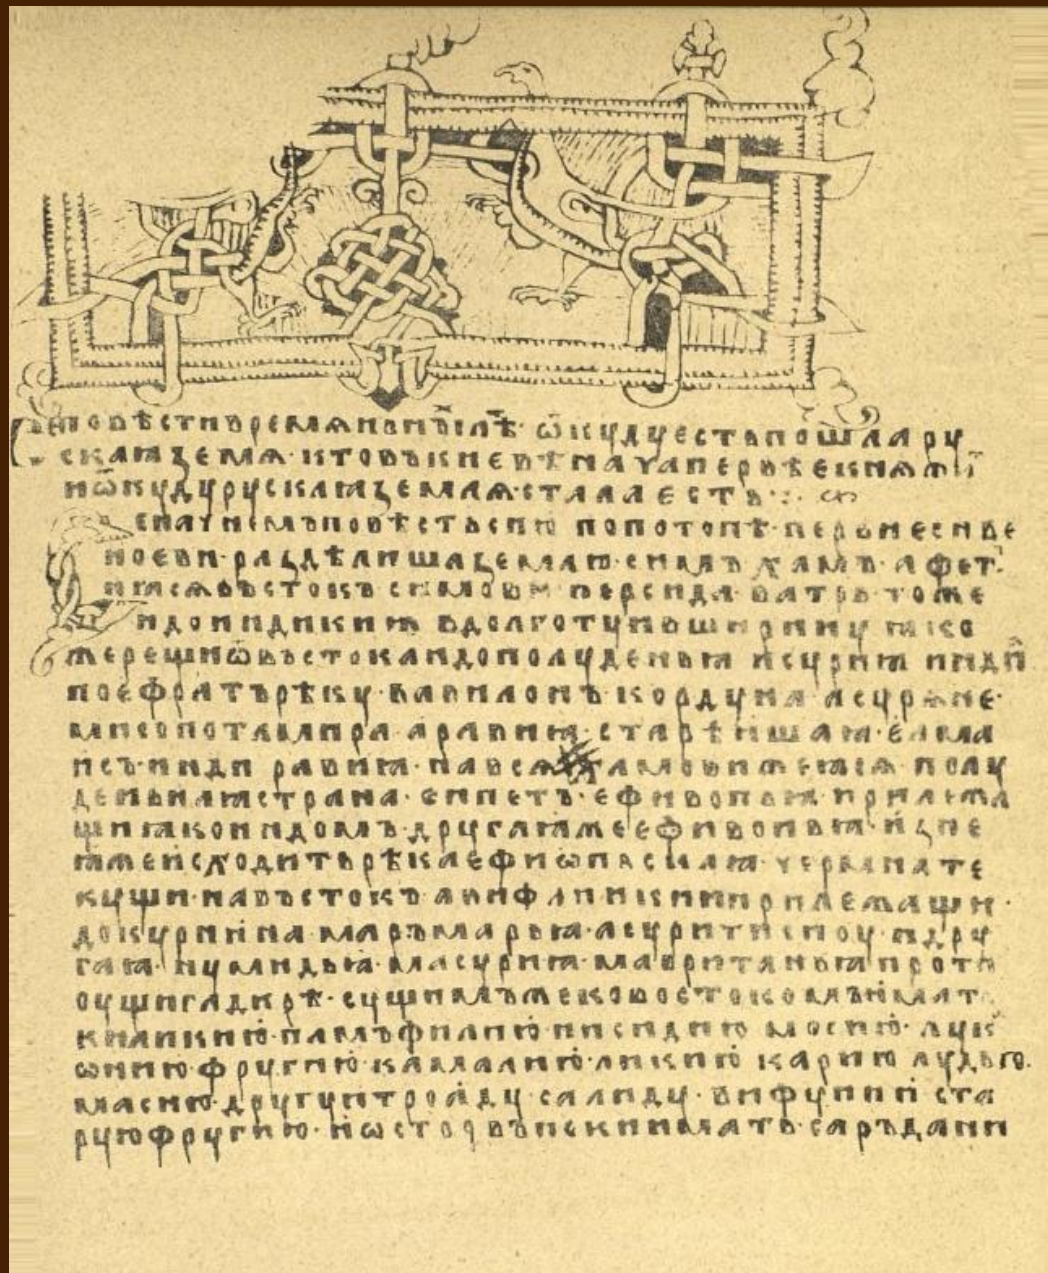 Се повѣсти времѧньных лѣт · ѿкуду есть пошла ру
скаꙗ земѧ · кто въ киевѣ нача первѣе кнѧж
и ѿкуду рускаꙗ землѧ стала есть
се начнемъ повѣсть сию по потопѣ · первие снве
ноеви · раздѣлиша землю · симъ хамъ · афет
и ꙗсѧ въстокъ симови персида · ватрь · тоже
и до индикиꙗ в долготу и въ ширину ꙗко
же рещи ѿ въстока и до полуденьꙗ и суриꙗ индиꙗ
по ефратъ рѣку · вавилонъ · кордуна · асурѧне ·
мисопотамира · аравиꙗ · старѣишаꙗ · елма
исъ · инди равиꙗ · на всѧ · хамови же ꙗсѧ полу
деньнаꙗ страна · еюпетъ · ефивопьꙗ · прилежа
щиꙗ ко индомъ · другаꙗ же ефивопьꙗ · из не
ꙗже исходить рѣка ефиѡпьскаꙗ · чермна те
кущи · на въстокъ
до куриниꙗ · маръмарьꙗ · асурити · и дру
гаꙗ нумидьꙗ · масуриꙗ · мавританьꙗ проти
ву сущи гадирѣ · сущимъ же къ востокомъ имать
киликию · памъфилию · писидию · мосию · лук
ѡнию · фругию · камалию · ликию · карию · лудью ·
масию другую · троаду · салиду · вифунию · ста
рую фругию ·